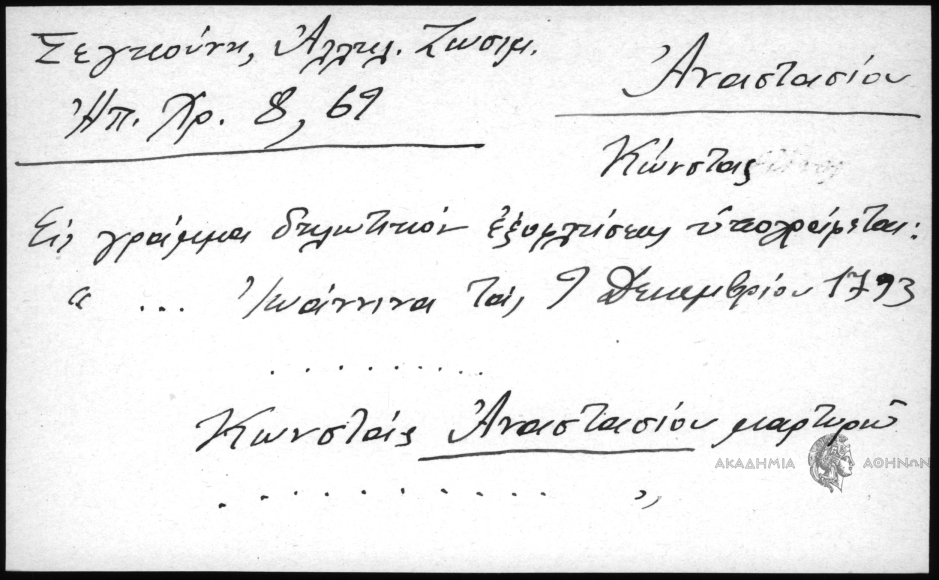 Σεγκούνη, Ἀλληλ. Ζωσιμ.
Ἠπ. Χρ. 8, 69
Ἀναστασίου
Κώνστας
Εἰς γράμμα δηλωτικὸν ἐξοφλήσεως ὑπογράφεται:
“ ... Ἰωάννινα τάς 9 Δεκεμβρίου 1793
. . . . . . . . .
Κωνστάς Ἀναστασίου μαρτυρῶ
ΑΚΑΔΗΜΙΑ ΑΘΗΝΩΝ
. . . . . . . . . . . „